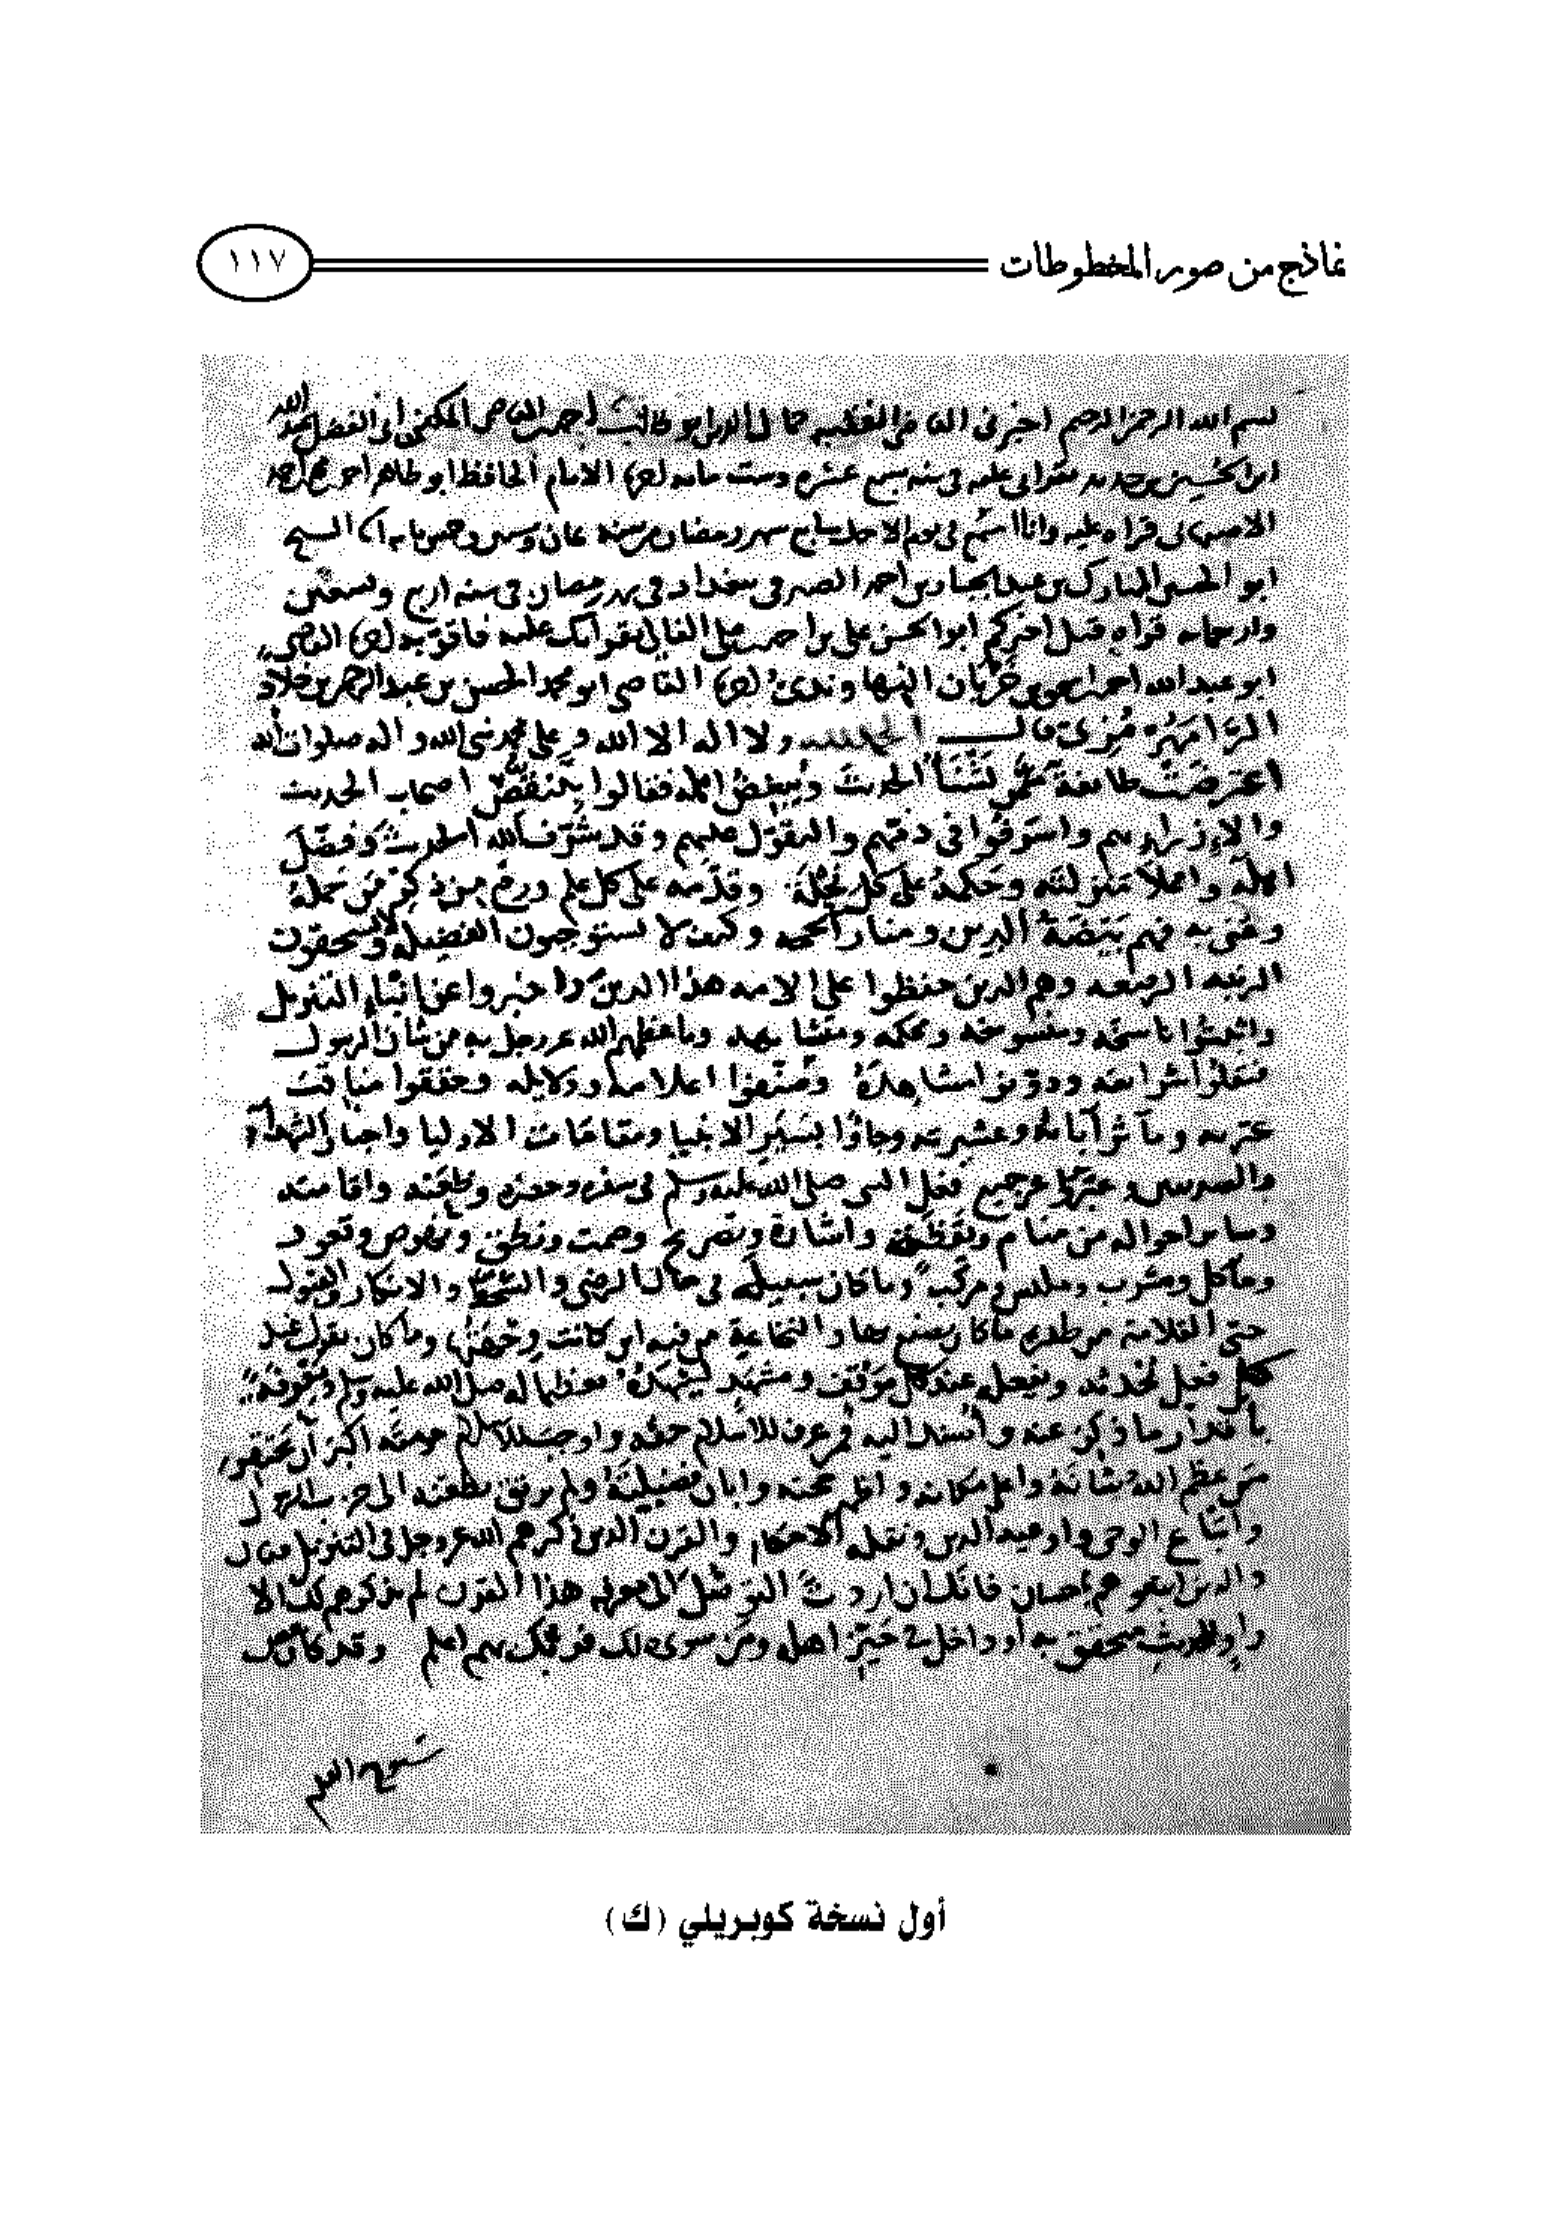 نماذج من صور المخطوطات
١١٧
بسم الله الرحمن الرحيم اخبرنى القاضى الفقيه ابو طالب احمد القاضى المكين ابى الفضل عبد الله
ابن الحسين بن حديد بقراتى عليه فى سنه سبع عشره وست مايه الامام الحافظ ابو طاهر احمد بن محمد بن احمد
الاصبهانى قراه عليه وانا اسمع فى يوم الاحد سابع شهر رمضان من سنة ثمان وستين وخمس مايه الشيخ
ابو الحسين المبارك بن عبد الجبار بن احمد الصيرفى ببغداد فى شهر رمضان فى سنه اربع وتسعين
واربعمايه قراه قيل اخبركم ابو الحسن على بن احمد بن على الفالى بقراتك عليه فاقر به القاضى
ابو عبد الله احمد بن اسحق بن خربان النهاوندى القاضى ابو محمد الحسن بن عبد الرحمن بن خلاد
الرّامَهُرْمُزِىّ قال الحمد لله ولا اله الا الله وعلى محمد نبى الله واله صلوات الله
اعترضت طائفة ممن يشنأ الحديث ويبغض اهله فقالوا بتنقص اصحاب الحديث
والازراء بهم واسرفوا فى ذمهم والتقول عليهم وقد شرف الله الحديث وفضل
اهله واعلا منزلته وحكمه على كل نحلة وقدمه على كل علم ورفع من ذكر من حمله
وعنى به فهم بيضة الدين ومنار الحجه وكيف لا يستوجبون الفضيله ولا يستحقون
الرتبه الرفيعه وهم الذين حفظوا على الامه هذا الدين واخبروا عن انباء التنزيل
واثبتوا ناسخه ومنسوخه ومحكمه ومتشابهه وما عظمه الله عز وجل به من شان الرسول
فنقلوا شرائعه ودونوا مشاهده وصنفوا اعلامه ودلايله وحققوا مناقب
عترته وماثر آبائه وعشيرته وجاؤا بسير الانبيا ومقامات الاوليا واخبار الشهداء
والصديقين وعبروا عن جميع فعل النبى صلى الله عليه وسلم فى سفره وحضره وظعنه واقامته
وساير احواله من منام ويقظة واشارة وتصريح وصمت ونطق ونهوض وقعود
وماكل ومشرب وملبس ومركب وما كان سبيله فى حال الرضى والسخط والانكار والقبول
حتى القلامة من ظفره ما كان يصنع بها والنخاعة من فيه اين كانت وجهتها وما كان يقول عند
كل فعل يحدثه ويفعله عند كل موقف ومشهد يشهده تعظيما له صلى الله عليه وسلم ومعرفة
باقدار ما ذكر عنه واسند اليه فمن عرف للاسلام حقه واوجب للاسلام حرمته اكبر ان يحتقر
من عظم الله شانه واعلى مكانه واظهر حجته وابان فضيلته ولم يرتق بطعنه الى حزب الرسول
واتباع الوحى واوعية الدين ونقله الاحكام والقرن الذين ذكرهم الله عز وجل فى التنزيل فقال
والذين اتبعوهم باحسان فانك ان اردت التوصل الى معرفه هذا القرن لم يذكرهم لك الا
راو للحديث متحقق به او داخل فى حيز اهله ومن سوى ذلك فربك بهم اعلم وقد كان
شيوخ العلم
أول نسخة كوبريلي (ك)